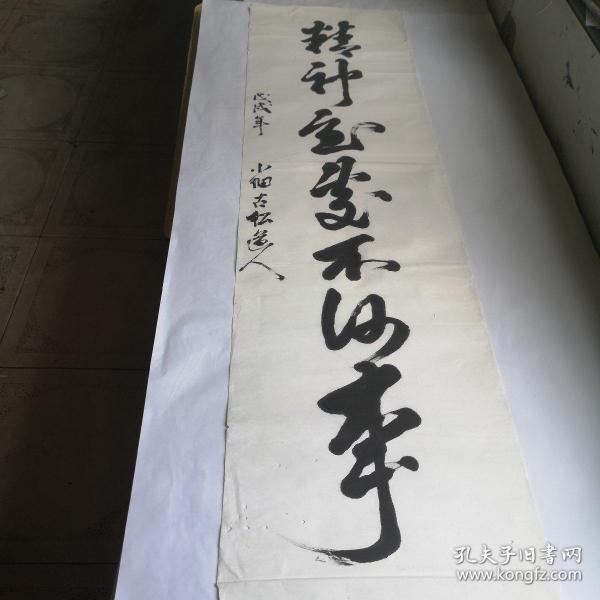 精神不何事
戊戌年 小畑古松道人
孔夫子旧书网
www.kongfz.com